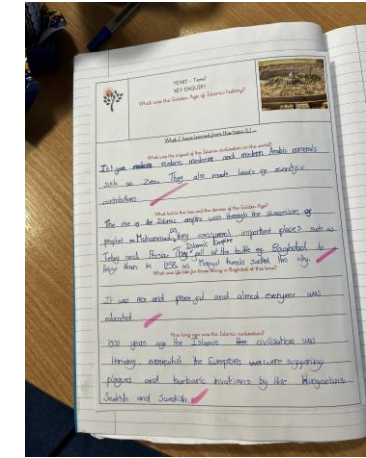 YEAR7 - Term1
KEY ENQUIRY
What was the Golden Age of Islamic history?
What I have learned from this topic
What was the impact of the Islamic civilisation in the world?
It gave modern medicine and modern Arabic numerals
such as Zero. They also made loads of scientific
contributions
What led to the rise and the demise of the Golden Age?
The rise of the Islamic empire was through the of
prophet Muhammad, they conquered important places such as
Turkey and Persia. They fell at the battle of Baghdad
Islamic Empire
in 1258 as Mongol hands sacked the city.
What was life like for those living in Baghdad at this time?
It was nice and peaceful and almed everyone was
educated.
How long ago was the Islamic civilisation?
1000 years ago the Islamic civilisation was
thriving, meanwhile the Europeans were
plagues and barbaric invations by the Hungarians
and Swedish.